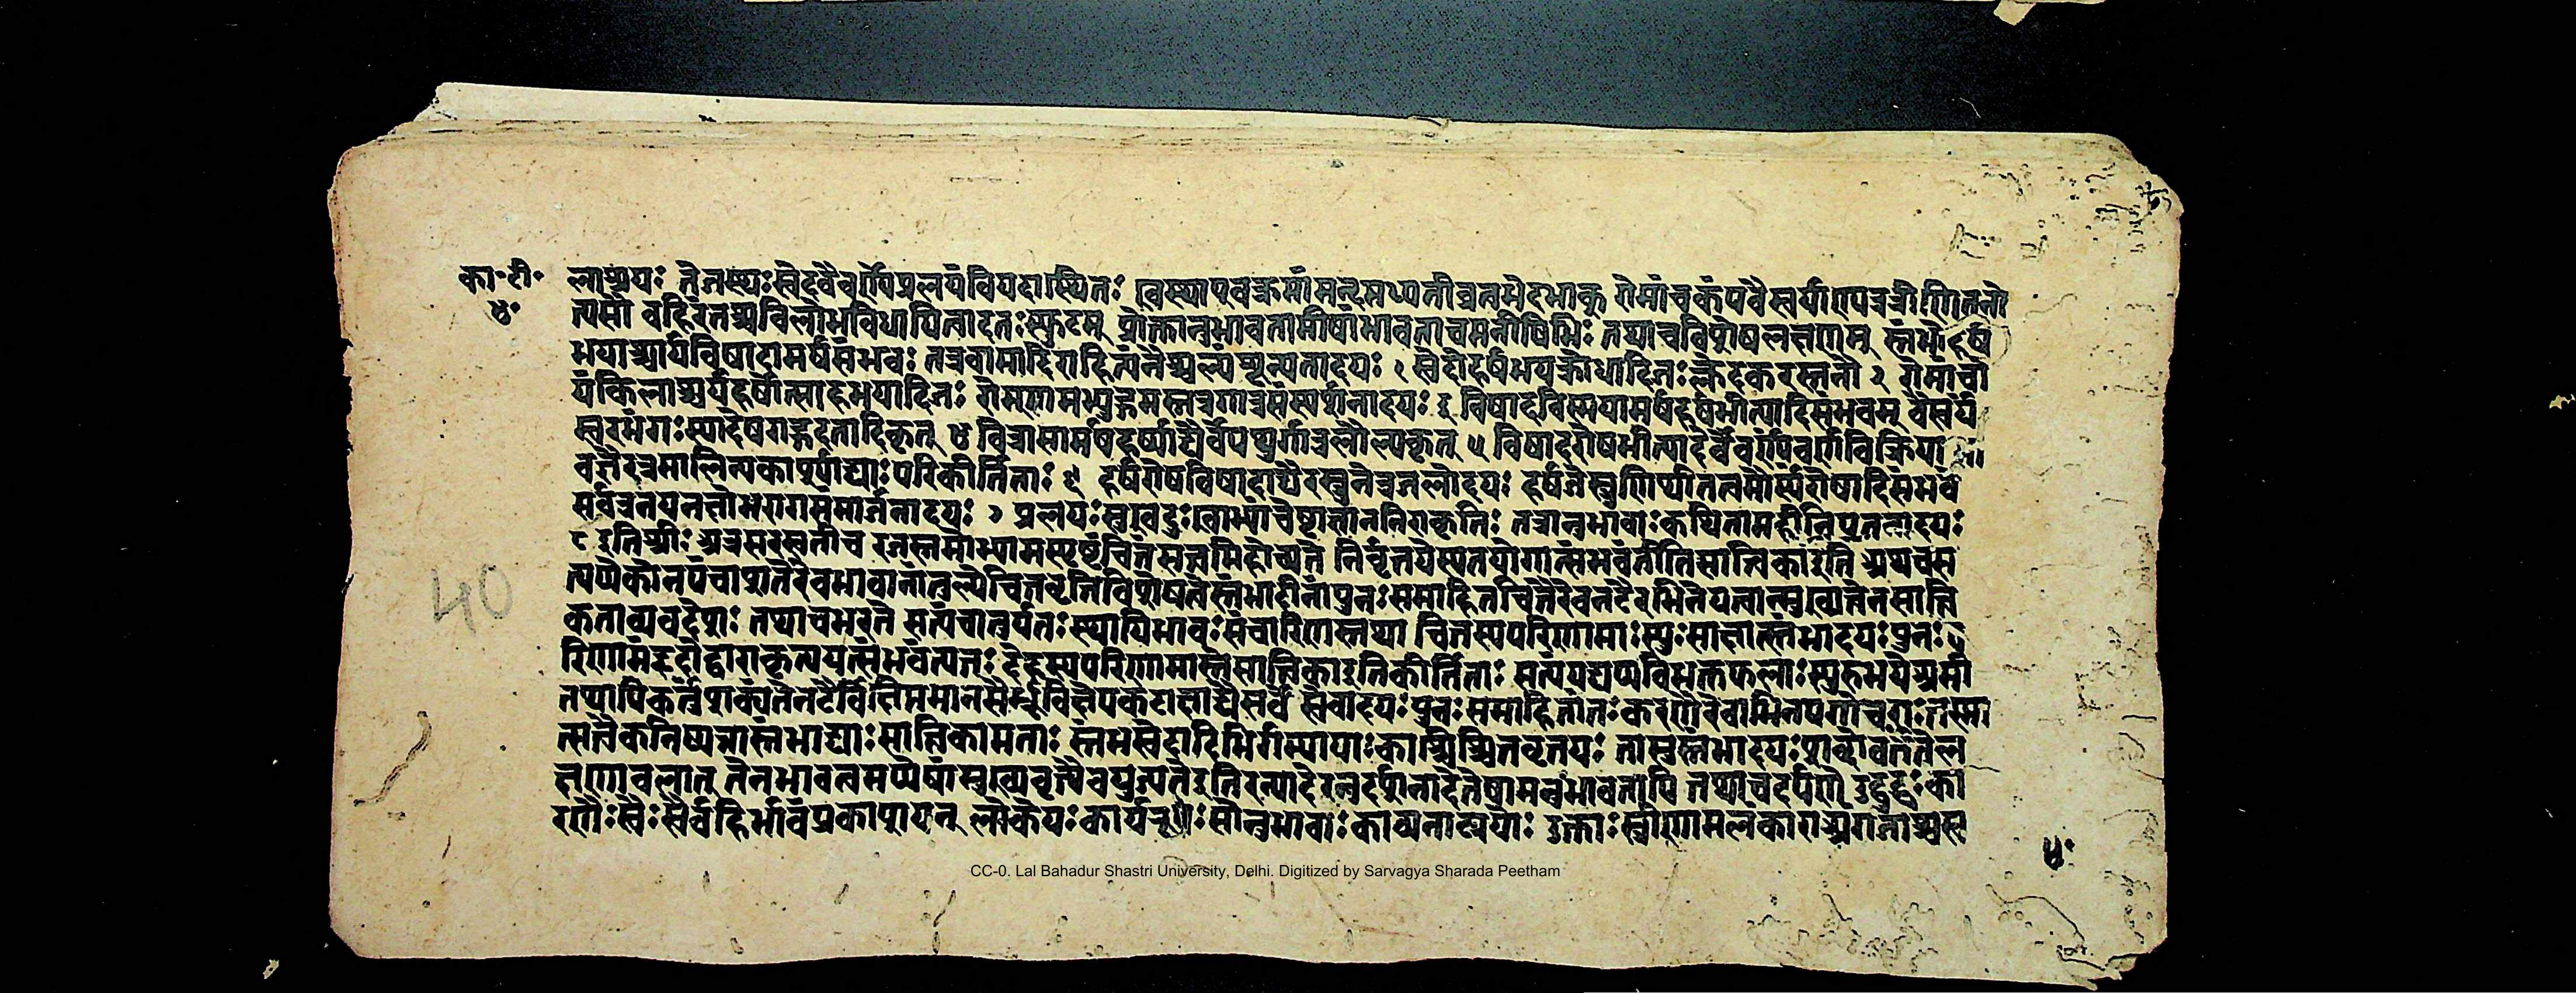 का॰टी॰
५॰
लाश्रयः तेजस्थः स्वेदवैवर्ण्यप्रलयं वियदास्थितः खस्थाएवक्रमान्मन्दमध्यतीव्रत्वभेदभाक् रोमांचकंपवैस्वर्याण्यत्रत्रीणितनो
त्यसौ वहिरंतश्चविक्षोभविधायित्वादतःस्फुटम् प्रोक्तानुभावतामीषांभावताचमनीषिभिः तथाचविशेषलक्षणम् स्तंभोहर्ष
भयाश्चर्यविषादामर्षसंभवः तत्रवागादिराहित्यंनैश्चल्यंशून्यतादयः १ स्वेदोहर्षभयक्रोधादिजःक्लेदकरस्तनौ २ रोमांचो
यंकिलाश्चर्यहर्षोत्साहभयादिजः रोम्णामभ्युद्गमस्तत्रगात्रसंस्पर्शनादयः ३ विषादविस्मयामर्षहर्षभीत्यादिसंभवम् वैस्वर्यं
स्वरभंगःस्यादेषगद्गदतादिकृत् ४ वित्रासामर्षहर्षाद्यैर्वेपथुर्गात्रलौल्यकृत् ५ विषादरोषभीत्यादेर्वैवर्ण्यंवर्णविक्रिया
वज्ञैरत्रमालिन्यकार्श्याद्याःपरिकीर्तिताः ६ हर्षरोषविषादाद्यैरश्रुनेत्रजलोदयः हर्षजेश्रुणिशीतत्वमौष्ण्यंरोषादिसंभवे
सर्वत्रनयनक्षोभरागसंमार्जनादयः ७ प्रलयःसुखदुःखाभ्यांचेष्टाज्ञाननिराकृतिः तत्रानुभावाःकथितामहीनिपतनादयः
८ इतिश्रीः अत्रसरस्वतीच रजस्तमोभ्यामस्पृष्टंचित्तंसत्त्वमिहोच्यते निर्वृत्तयेस्यतद्योगात्संभवंतीतिसात्त्विकाइति अथचस
त्यप्येकोनपंचाशतैरेवभावानांतुल्येचित्तवृत्तिविशेषत्वेस्तंभादीनांपुनःसमाहितचित्तैरेवनटैरभिनेयत्वात्मुख्यत्वेनसात्त्वि
कताव्यवदेशः तथाचभरते सत्यंचानुर्यतःस्थायिभावःसंचारिणस्तथा चित्तस्यपरिणामाःस्युःसाक्षात्स्तंभादयःपुनः
रिणामंहृदोद्वाराकृत्यययत्संभवंत्यतः देहस्यपरिणामास्तेसात्त्विकाइतिकीर्तिताः सत्यंयद्यप्यविभक्तफलाःस्युरुभयेअमी
तथापिकर्तुंशक्यंतेनटैर्विक्षिप्तमानसैर्भ्रूविक्षेपकटाक्षाद्यैसर्वे स्वेदादयःपुनः समाहितांतःकरणैरेवाभिनयगोचराःतस्मा
त्सत्त्वैकनिष्पन्नास्तंभाद्याःसात्त्विकामताः स्तंभस्वेदादिभिर्गम्यायाःकाश्चिच्चित्तवृत्तयः तास्तुस्तंभादयःशब्दावर्ततेल
क्षणावलात् तेनभावत्वमप्येषांमुख्यवृत्त्यैवयुज्यतेइतिरत्यादेरनुदर्शनादेतेषामनुभावतापि तथाचदर्पणे उद्बुद्धंका
रणैःस्वैःस्वैर्वहिर्भावंप्रकाशयन् लोकेयःकार्यरूपःसोनुभावःकाव्यनाट्ययोः उक्ताःस्त्रीणामलंकाराअंगजाश्चस्व
40
५॰
CC-0. Lal Bahadur Shastri University, Delhi. Digitized by Sarvagya Sharada Peetham